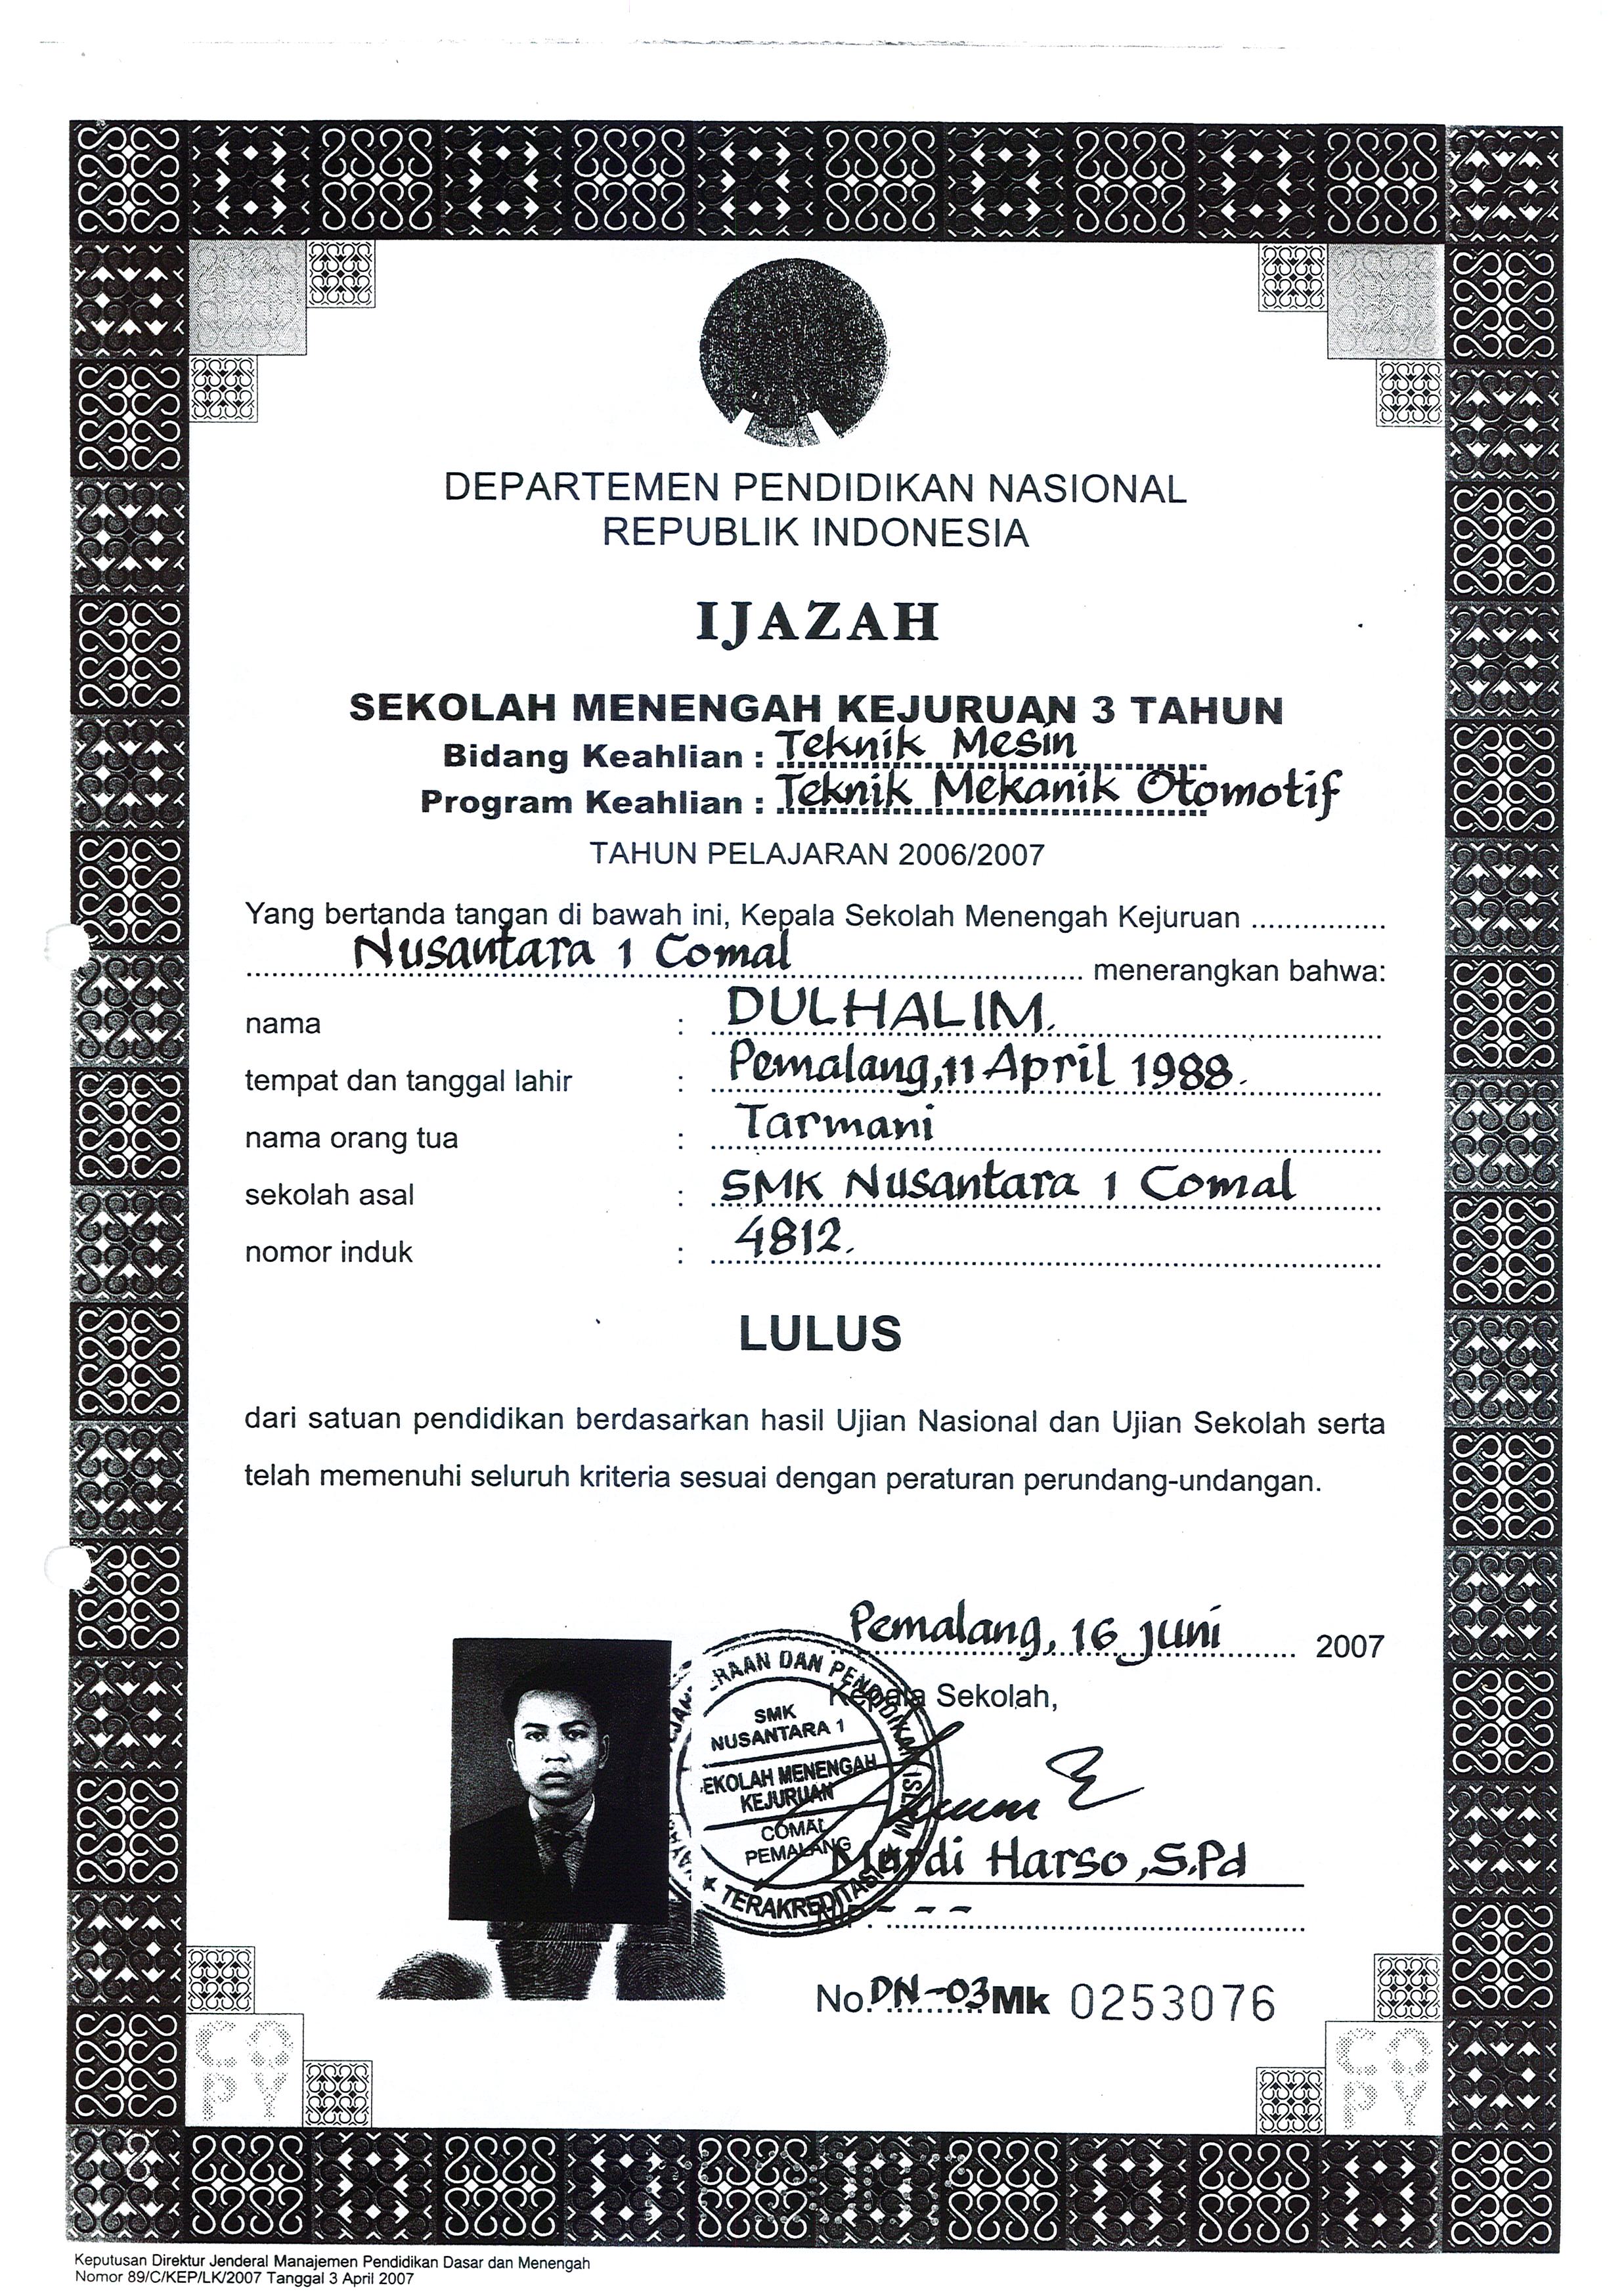 DEPARTEMEN PENDIDIKAN NASIONAL
REPUBLIK INDONESIA
IJAZAH
SEKOLAH MENENGAH KEJURUAN 3 TAHUN
Bidang Keahlian : Teknik Mesin
Program Keahlian : Teknik Mekanik Otomotif
TAHUN PELAJARAN 2006/2007
Yang bertanda tangan di bawah ini, Kepala Sekolah Menengah Kejuruan ................
Nusantara 1 Comal menerangkan bahwa:
nama : DULHALIM.
tempat dan tanggal lahir : Pemalang, 11 April 1988.
nama orang tua : Tarmani
sekolah asal : SMK Nusantara 1 Comal
nomor induk : 4812.
LULUS
dari satuan pendidikan berdasarkan hasil Ujian Nasional dan Ujian Sekolah serta
telah memenuhi seluruh kriteria sesuai dengan peraturan perundang-undangan.
Pemalang, 16 Juni 2007
Kepala Sekolah,
RAAN DAN PENDIDIKAN ISLAM
SMK
NUSANTARA 1
EKOLAH MENENGAH
KEJURUAN
COMAL
PEMALANG
TERAKREDITASI
Murdi Harso, S.Pd
NIP. - - -
No. DN-03 Mk 0253076
COPY
COPY
Keputusan Direktur Jenderal Manajemen Pendidikan Dasar dan Menengah
Nomor 89/C/KEP/LK/2007 Tanggal 3 April 2007